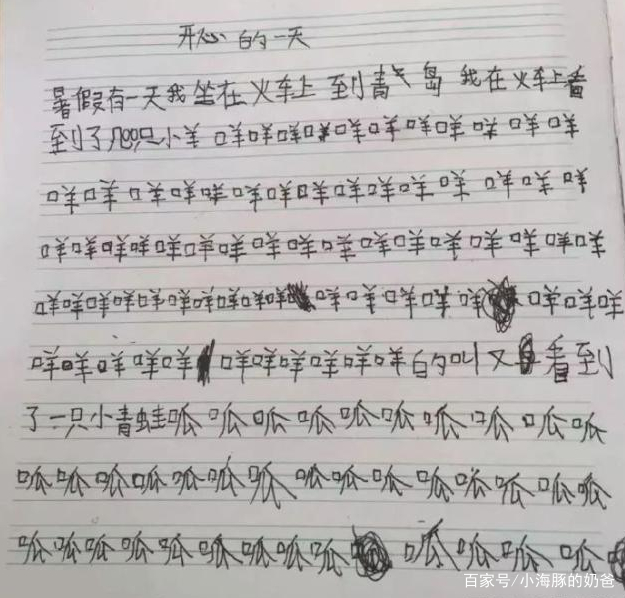 开心的一天
暑假有一天我坐在火车上到青气岛我在火车上看
到了几只小羊咩咩咩咩咩咩咩咩咩咩咩
咩咩咩咩咩咩咩咩咩咩咩咩咩咩咩
咩咩咩咩咩咩咩咩咩咩咩咩咩咩咩咩咩
咩咩咩咩咩咩咩咩咩咩咩咩咩咩咩咩咩咩
咩咩咩咩咩咩咩咩咩咩咩的叫又看到
了一只小青蛙呱呱呱呱呱呱呱呱呱呱
呱呱呱呱呱呱呱呱呱呱呱呱呱呱呱
呱呱呱呱呱呱呱呱呱呱呱呱呱
百家号/小海豚的奶爸